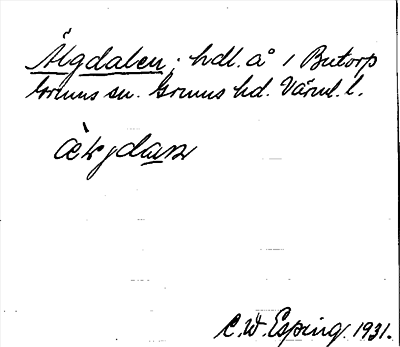 Älgdalen; hdl. å 1 Butorp
Grums sn. Grums hd. Värml. l.
C.W. Esping. 1931.